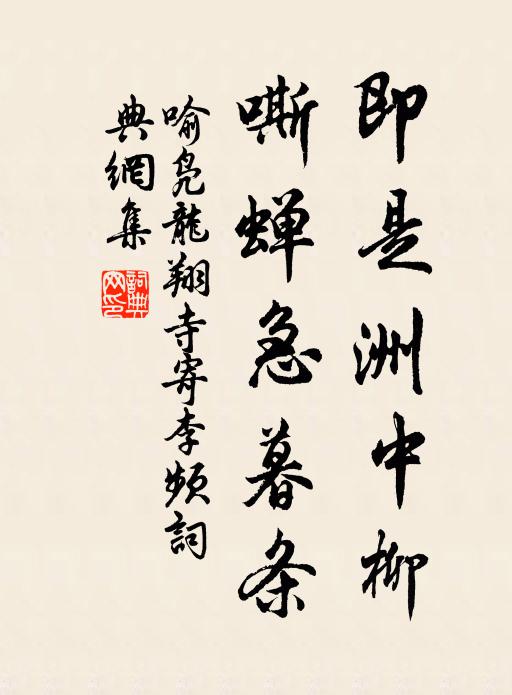 即是洲中柳
嘶蝉急暮条
喻凫龍翔寺寄李频詞
典網集
詞典网印